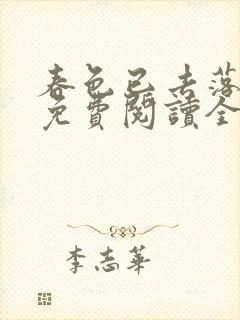 春色已去落
免費閱讀全
李志華